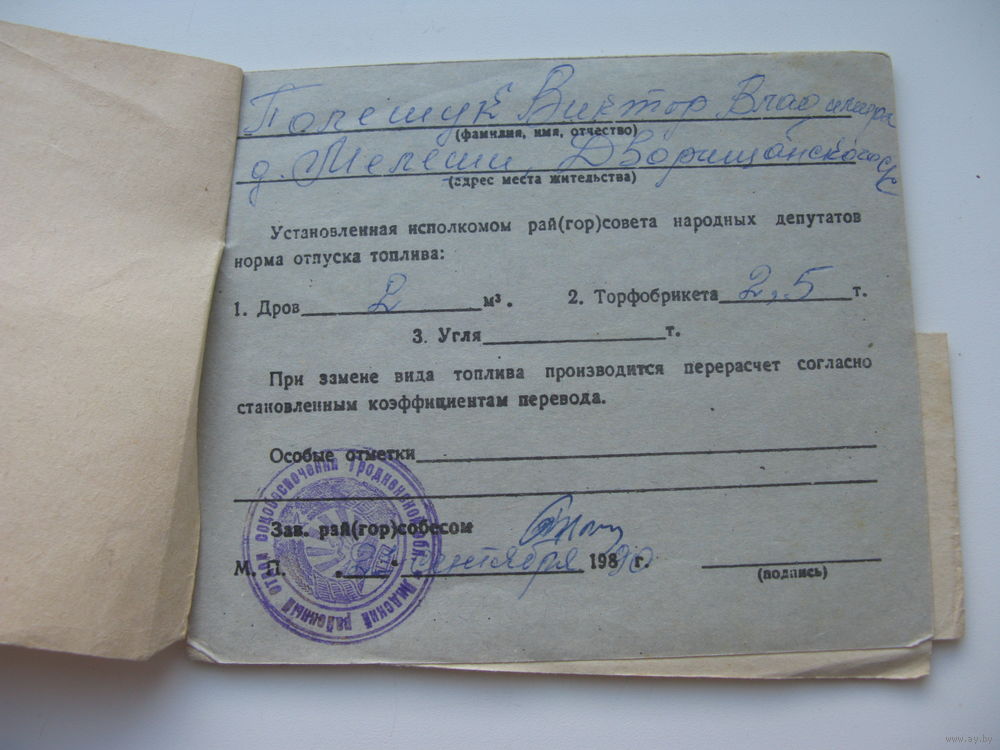 Полещук Виктор Владимира
(фамилия, имя, отчество)
д. Мелеши, Дворищанского с/с
(адрес места жительства)
Установленная исполкомом рай(гор)совета народных депутатов
норма отпуска топлива:
1. Дров 2 м³. 2. Торфобрикета 2,5 т.
3. Угля т.
При замене вида топлива производится перерасчет согласно
становленным коэффициентам перевода.
Особые отметки
Зав. рай(гор)собесом
М. П. сентября 198 90 г.
(подпись)
Лидский районный отдел соцобеспечения Гродненской обл.
www.ay.by